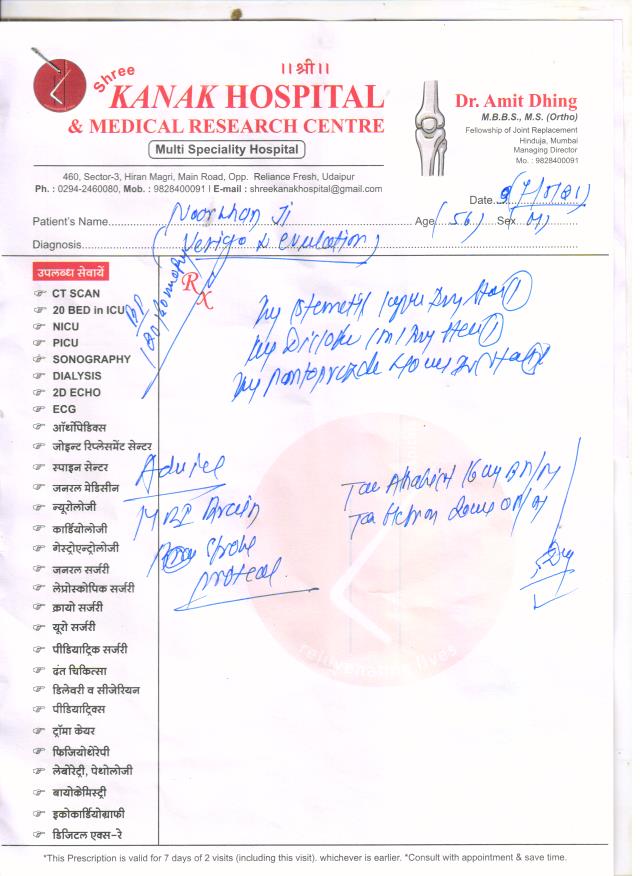 ।। श्री ।।
Shree
KANAK HOSPITAL
& MEDICAL RESEARCH CENTRE
Multi Speciality Hospital
Dr. Amit Dhing
M.B.B.S., M.S. (Ortho)
Fellowship of Joint Replacement
Hinduja, Mumbai
Managing Director
Mo. : 9828400091
460, Sector-3, Hiran Magri, Main Road, Opp. Reliance Fresh, Udaipur
Ph. : 0294-2460080, Mob. : 9828400091 | E-mail : shreekanakhospital@gmail.com
Date
Patient's Name Noorkhan Ji Age (56) Sex M)
Diagnosis (Vertigo evulation)
उपलब्ध सेवायें
Rx
CT SCAN
20 BED in ICU
NICU
PICU
SONOGRAPHY
DIALYSIS
2D ECHO
ECG
ऑर्थोपेडिक्स
जोइन्ट रिप्लेसमेंट सेन्टर
स्पाइन सेन्टर
जनरल मेडिसीन
न्यूरोलोजी
कार्डियोलोजी
गेस्ट्रोएन्ट्रोलोजी
जनरल सर्जरी
लेप्रोस्कोपिक सर्जरी
क्रायो सर्जरी
यूरो सर्जरी
पीडियाट्रिक सर्जरी
दंत चिकित्सा
डिलेवरी व सीजेरियन
पीडियाट्रिक्स
ट्रॉमा केयर
फिजियोथेरेपी
लेबोरेट्री, पेथोलोजी
बायोकेमिस्ट्री
इकोकार्डियोग्राफी
डिजिटल एक्स-रे
BP
Inj Stemetil
Inj
Inj Pantoprazole
Advice
MRI Brain
Stroke
protocal
Tab
Tab
rejuvenating lives
*This Prescription is valid for 7 days of 2 visits (including this visit). whichever is earlier. *Consult with appointment & save time.